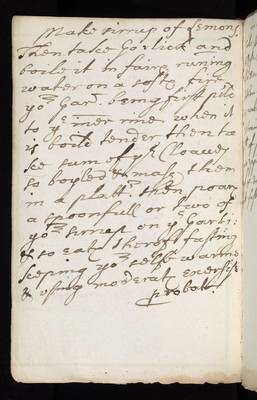 Make sirrup of Lemons
Then take Garlick and
boile it in faire runing
water on a softe fire
yor Gar: being first pild
to ye iner rine when it
is boild tender then ta
ke sum of ye Cloaves
so boyled & mash them
in a plattr: then poare
a spoonfull or two of
yor sirrup on ye Garl::
& so eate thereof fasting
keeping yor selfe warme
& using moderate exersise
probat: